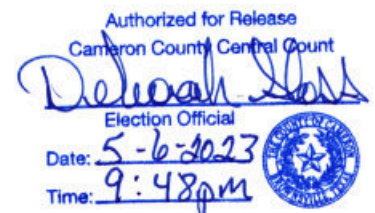 Authorized for Release
Cameron County Central Count
Deborah
Election Official
Date: 5-6-2023
Time: 9:48pm
THE COUNTY OF CAMERON
BROWNSVILLE, TEXAS